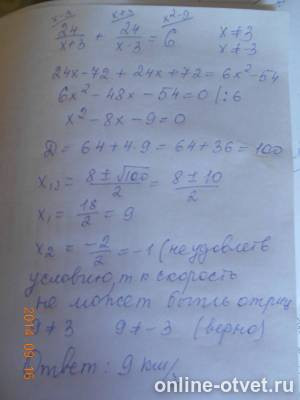 x-3 x+3 x²-9
24/x+3 + 24/x-3 = 6 x≠3
x≠-3
24x-72+24x+72=6x²-54
6x²-48x-54=0 |:6
x²-8x-9=0
D=64+4·9=64+36=100
x₁,₂= 8±√100/2 = 8±10/2
x₁= 18/2 = 9
x₂= -2/2 = -1 (не удовлетв
условию, т к скорость
не может быть отриц
9≠3 9≠-3 (верно)
Ответ: 9 км/
2014 09 16
online-otvet.ru